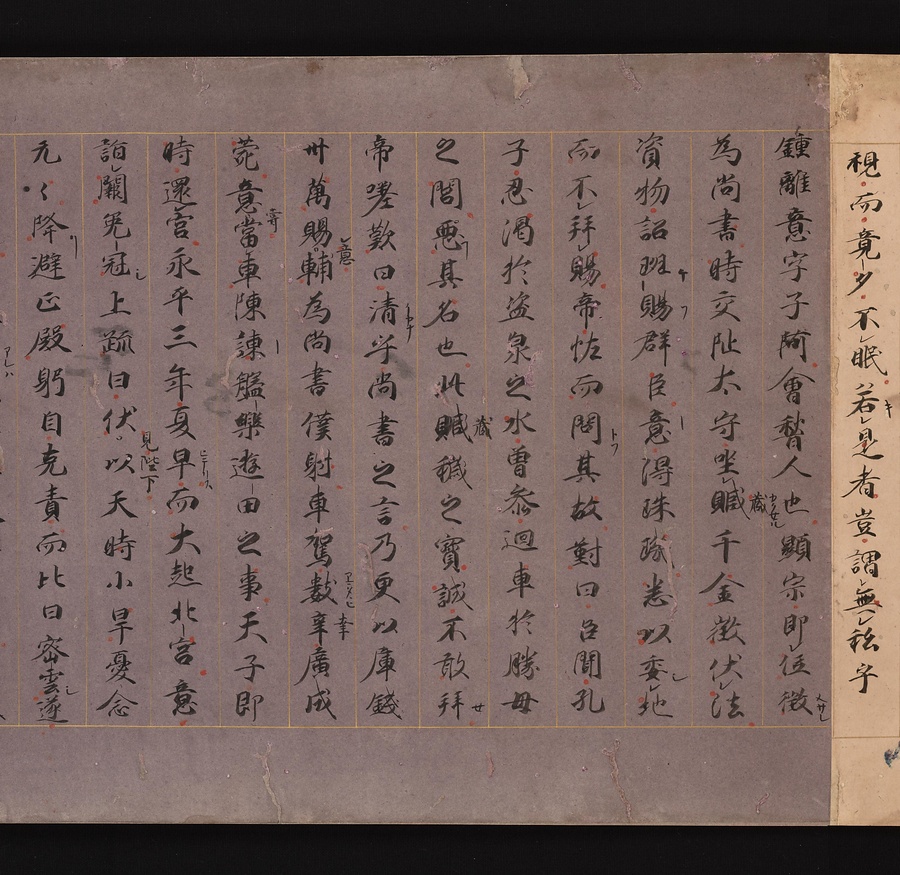 視而竟夕不眠若是者豈謂無私乎
鍾離意字子阿會稽人也顯宗即位徵
為尚書時交阯太守坐贓千金徵伏法
資物詔班賜群臣意得珠璣悉以委地
而不拜賜帝恠而問其故對曰臣聞孔
子忍渇於盗泉之水曽参迴車於勝母
之閭惡其名也此贓穢之寳誠不敢拜
帝嗟歎曰清乎尚書之言乃更以庫錢
卅萬賜意輔為尚書僕射車駕數幸廣成
菀意當車陳諫般樂遊田之事天子即
時還宮永平三年夏旱而大起北宮意
詣闕免冠上疏曰伏見陛下以天時小旱憂念
元〻降避正殿躬自克責而比日密雲遂